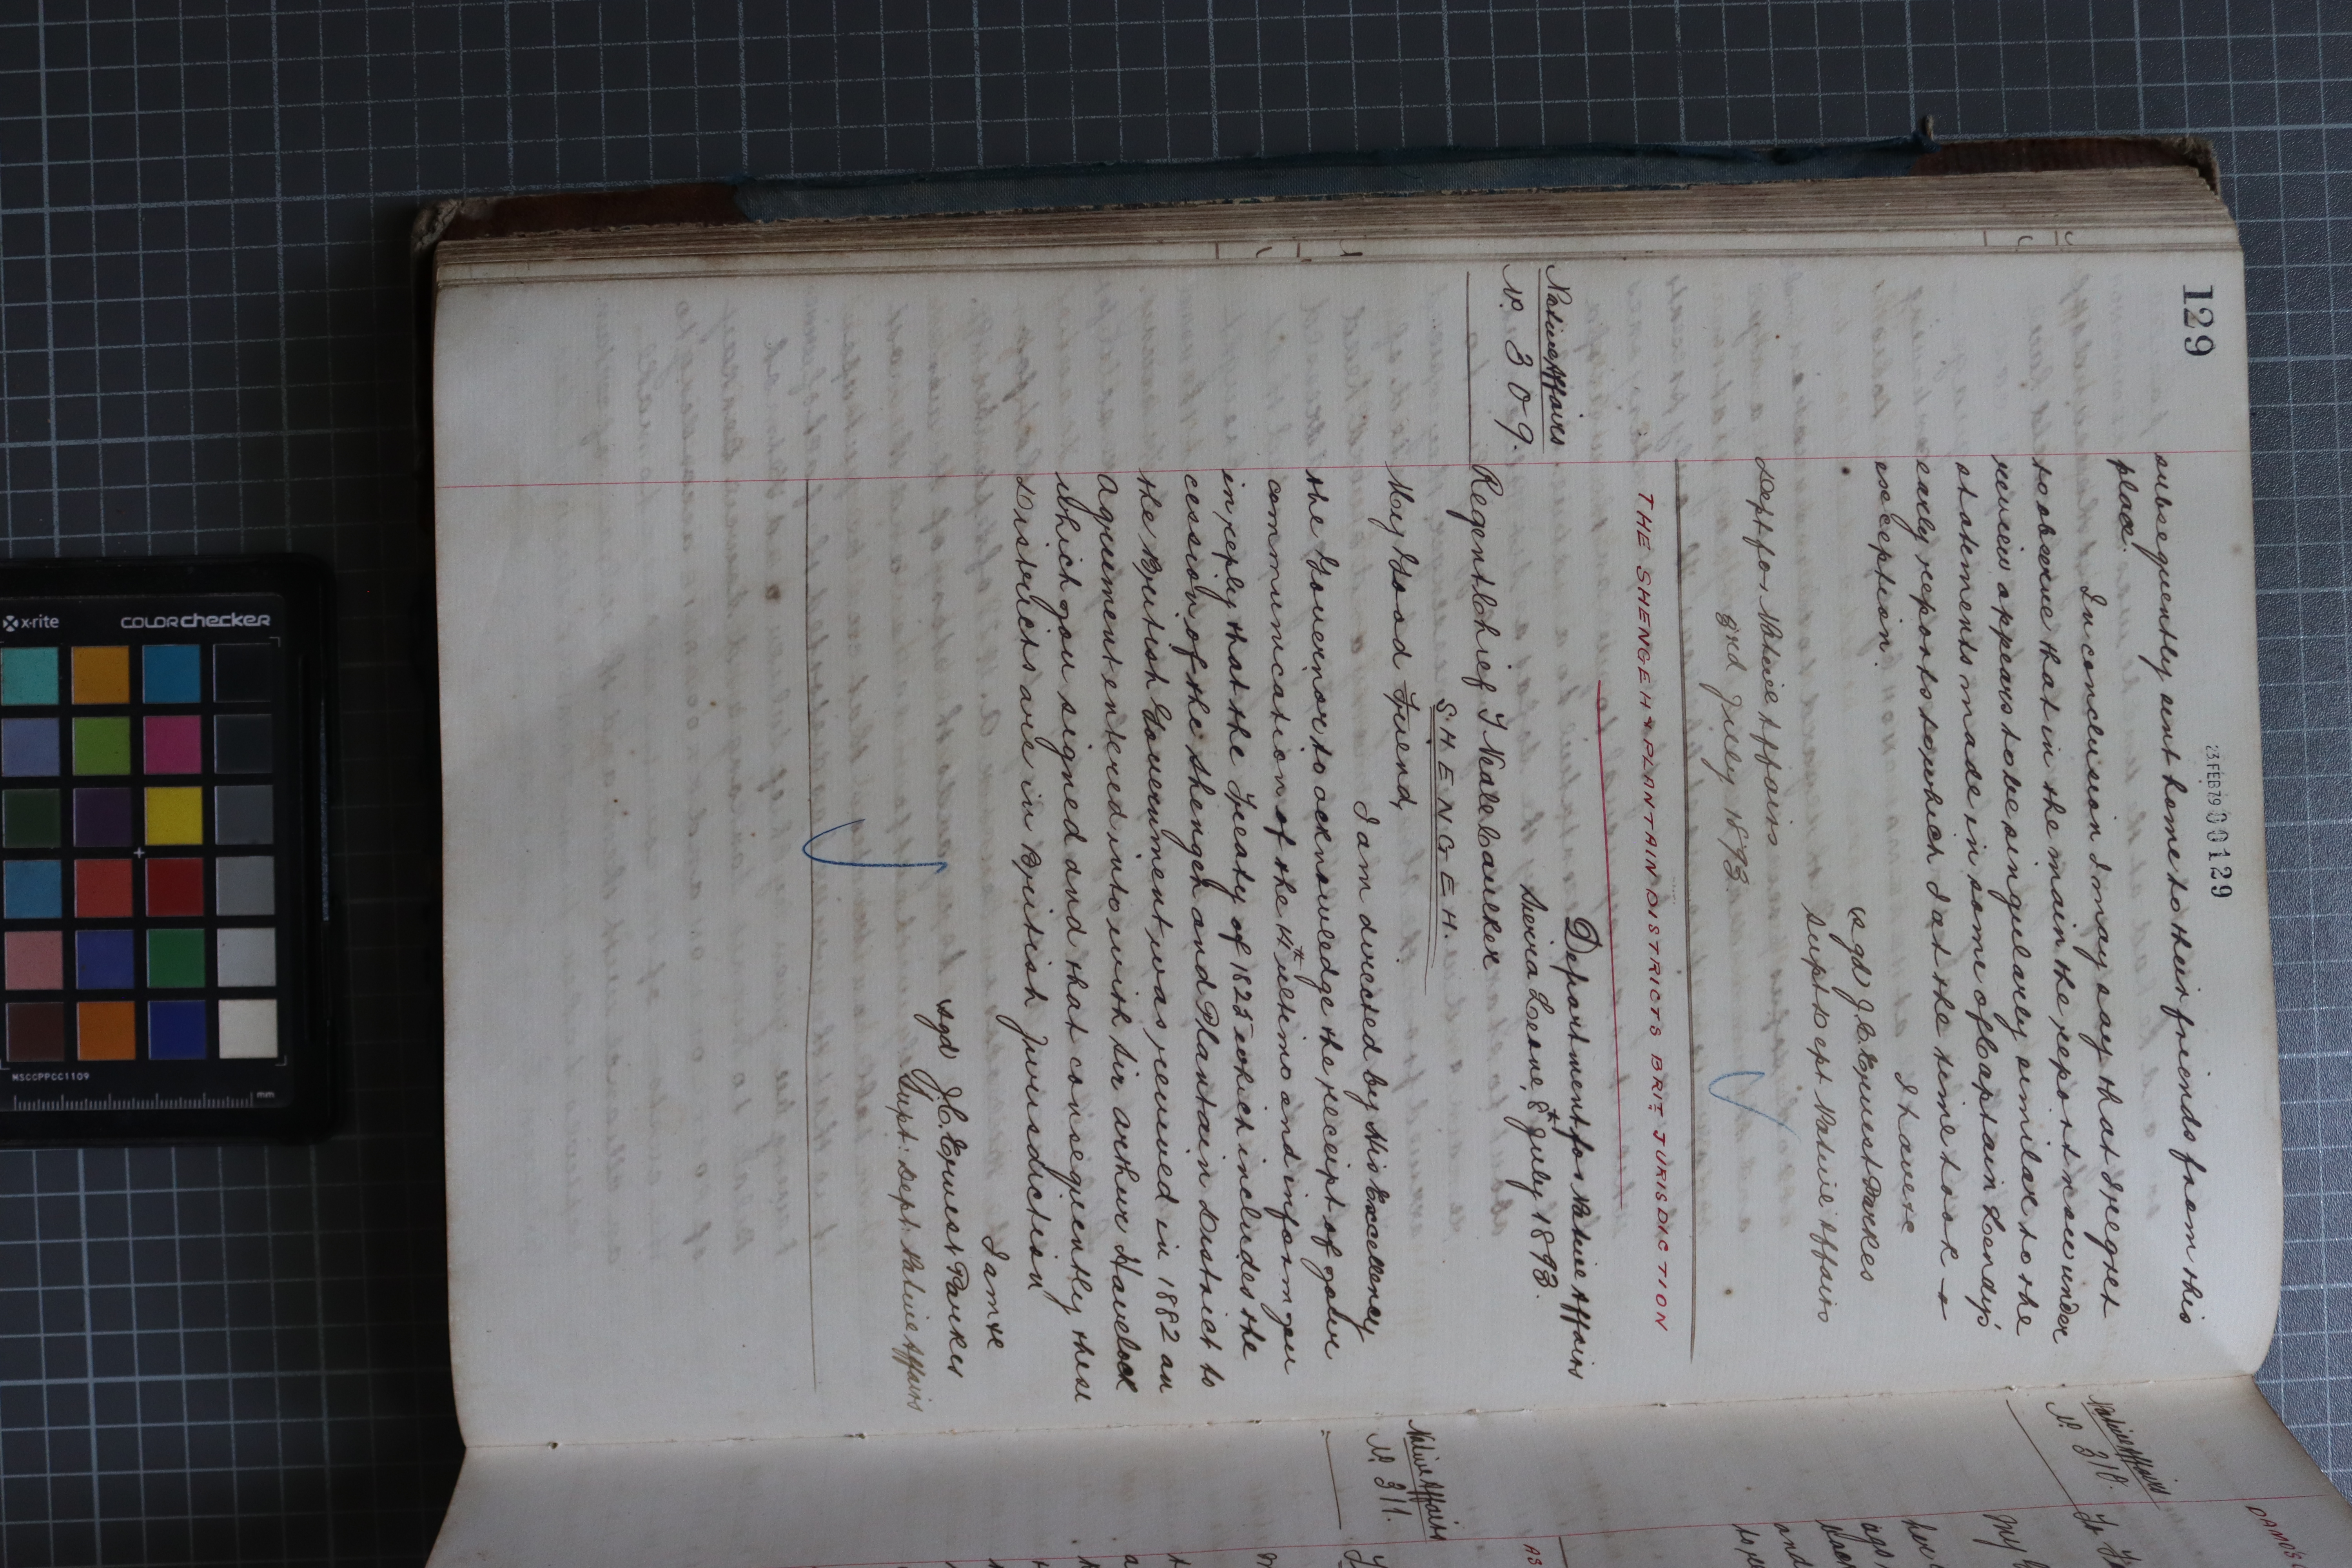 129
23 FEB 79 00129
subsequently sent home to their friends from this
place.
In conclusion I may say that I regret
to observe that in the main the report now under
review appears to be singularly similar to the
statements made in some of Captain Lendy's
early reports to which I at the time took
exception.
I have &c
sgd J. C. Ernest Parkes
Supt Dept Native Affairs
Dept for Native Affairs
3rd July 1893.
THE SHENGEH & PLANTAIN DISTRICTS BRIT: JURISDICTION
Native Affairs
No. 309.
Department for Native Affairs
Sierra Leone, 8th July 1893.
Regent Chief T Neale Caulker
SHENGEH.
My Good Friend,
I am directed by His Excellency
the Governor to acknowledge the receipt of your
communication of the 14th ultimo and inform you
in reply that the Treaty of 1825 which includes the
cession of the Shengeh and Plantain District to
the British Government was renewed in 1882 an
Agreement entered into with Sir Arthur Havelock
which you signed and that consequently these
Districts are in British Jurisdiction
I am &c
sgd J. C. Ernest Parkes
Supt: Dept: Native Affairs
Native Affairs
No. 310.
My
and
Native Affairs
No. 311.
x-rite
COLORchecker
MSCCPPCC1109
mm